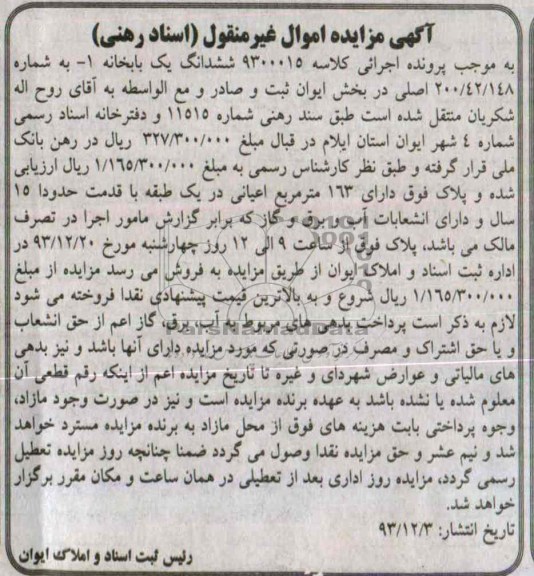 آگهی مزایده اموال غیرمنقول (اسناد رهنی)
به موجب پرونده اجرائی کلاسه ۹۳۰۰۰۱۵ ششدانگ یک بابخانه ۱- به شماره
۲۰۰/۴۲/۱۴۸ اصلی در بخش ایوان ثبت و صادر و مع الواسطه به آقای روح اله
شکریان منتقل شده است طبق سند رهنی شماره ۱۱۵۱۵ و دفترخانه اسناد رسمی
شماره ۴ شهر ایوان استان ایلام در قبال مبلغ ۳۲۷/۳۰۰/۰۰۰ ریال در رهن بانک
ملی قرار گرفته و طبق نظر کارشناس رسمی به مبلغ ۱/۱۶۵/۳۰۰/۰۰۰ ریال ارزیابی
شده و پلاک فوق دارای ۱۶۳ مترمربع اعیانی در یک طبقه با قدمت حدودا ۱۵
سال و دارای انشعابات آب و برق و گاز که برابر گزارش مامور اجرا در تصرف
مالک می باشد، پلاک فوق از ساعت ۹ الی ۱۲ روز چهارشنبه مورخ ۹۳/۱۲/۲۰ در
اداره ثبت اسناد و املاک ایوان از طریق مزایده به فروش می رسد مزایده از مبلغ
۱/۱۶۵/۳۰۰/۰۰۰ ریال شروع و به بالاترین قیمت پیشنهادی نقدا فروخته می شود
لازم به ذکر است پرداخت بدهی های مربوط به آب، برق، گاز اعم از حق انشعاب
و یا حق اشتراک و مصرف در صورتی که مورد مزایده دارای آنها باشد و نیز بدهی
های مالیاتی و عوارض شهردای و غیره تا تاریخ مزایده اعم از اینکه رقم قطعی آن
معلوم شده یا نشده باشد به عهده برنده مزایده است و نیز در صورت وجود مازاد،
وجوه پرداختی بابت هزینه های فوق از محل مازاد به برنده مزایده مسترد خواهد
شد و نیم عشر و حق مزایده نقدا وصول می گردد ضمنا چنانچه روز مزایده تعطیل
رسمی گردد، مزایده روز اداری بعد از تعطیلی در همان ساعت و مکان مقرر برگزار
خواهد شد.
تاریخ انتشار: ۹۳/۱۲/۳
رئیس ثبت اسناد و املاک ایوان